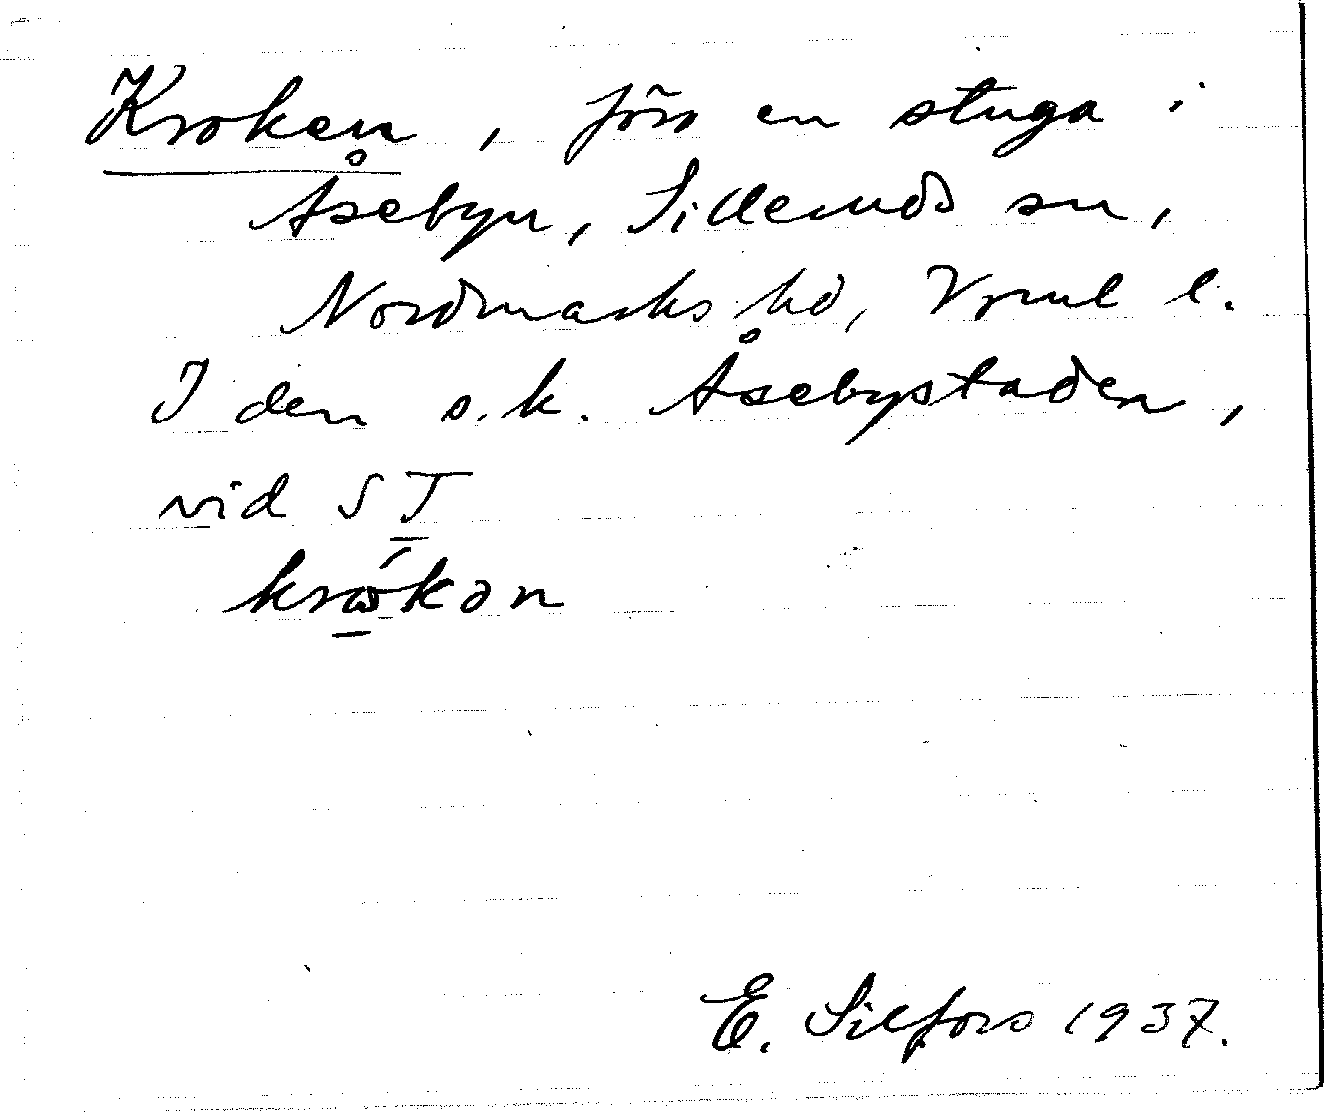 Kroken, förr en stuga i
Åsebyn, Sillerud sn,
Nordmarks hd, Vrml l.
I den s.k. Åsebystaden,
vid SJ
krώ̱kən
E. Silfors 1937.